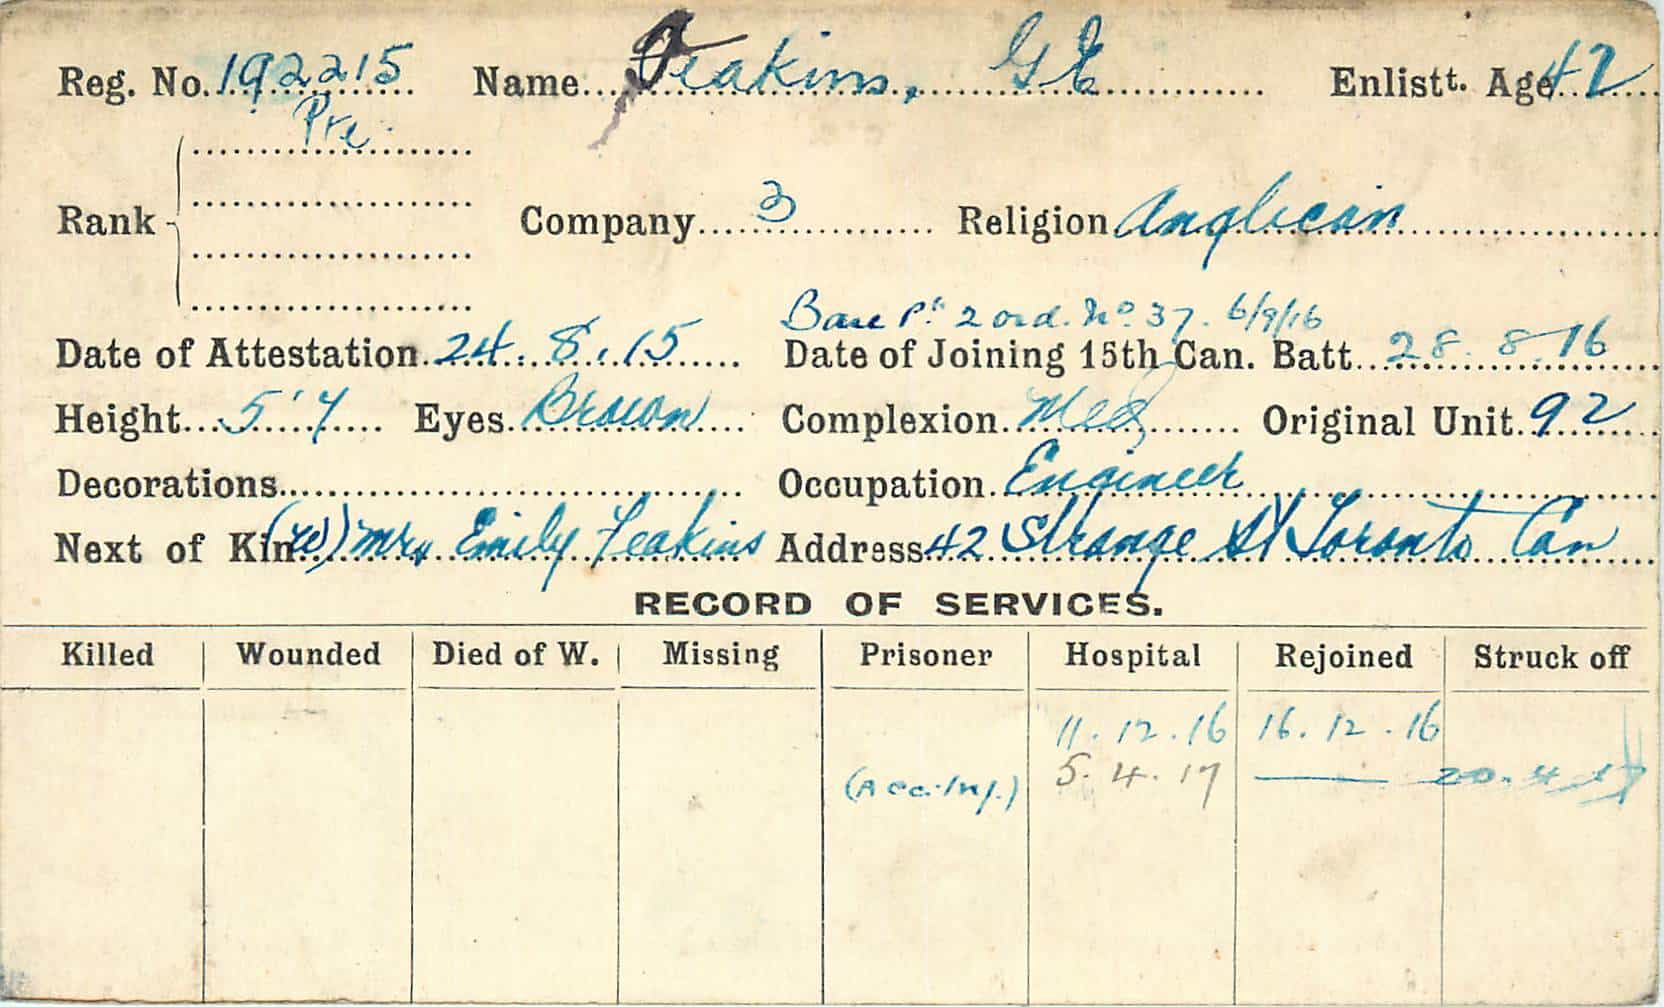 Reg. No. 192215 Name Feakins, G E Enlistt. Age 42
Pte.
Rank Company 3 Religion Anglican
Base Pt 2 ord. No. 37. 6/9/16
Date of Attestation 24.8.15 Date of Joining 15th Can. Batt. 28.8.16
Height 5'7 Eyes Brown Complexion Med Original Unit 92
Decorations Occupation Engineer
Next of Kin (W) Mrs Emily Feakins Address 42 Strange St Toronto Can
RECORD OF SERVICES.
Killed Wounded Died of W. Missing Prisoner Hospital Rejoined Struck off
11.12.16 16.12.16
(Acc. Inj.) 5.4.17 — 20.4.17